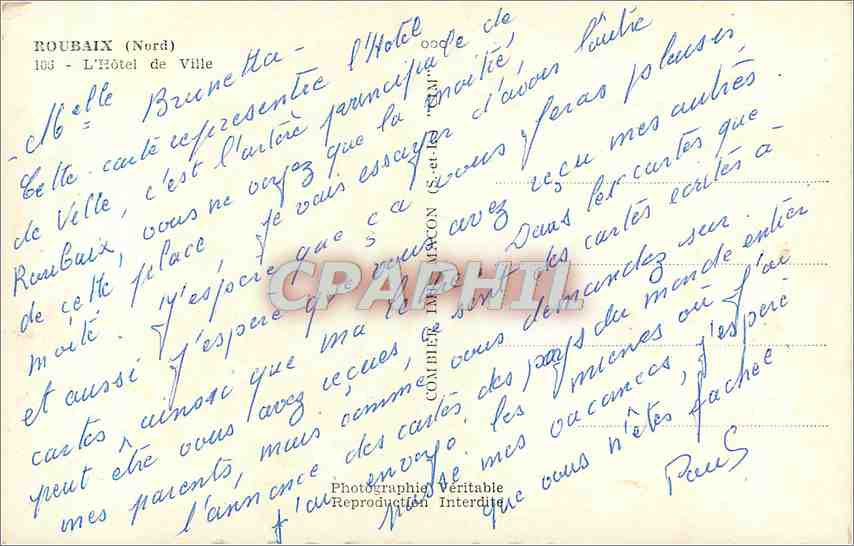 ROUBAIX (Nord)
105 - L'Hôtel de Ville
- Melle Brunetta -
Cette carte représente l'Hotel
de Ville, c'est l'artère principale de
Roubaix, vous ne voyez que la moitié,
de cette place, je vais essayer d'avoir l'autre
moitié. J'espère que ça vous feras plaisir,
et aussi j'espère que vous avez reçu mes autres
cartes ainsi que ma lettre. Dans les cartes que
peut être vous avez reçues, ce sont des cartes écrites à
mes parents, mais comme vous demandez sur
l'annonce des cartes des pays du monde entier
j'ai envoyé les miennes où j'ai
passé mes vacances, j'espère
que vous n'êtes fachée.
Paul
COMBIER IMP. MACON (S.-et-L.) "CIM"
CPAPHIL
Photographie Véritable
Reproduction Interdite